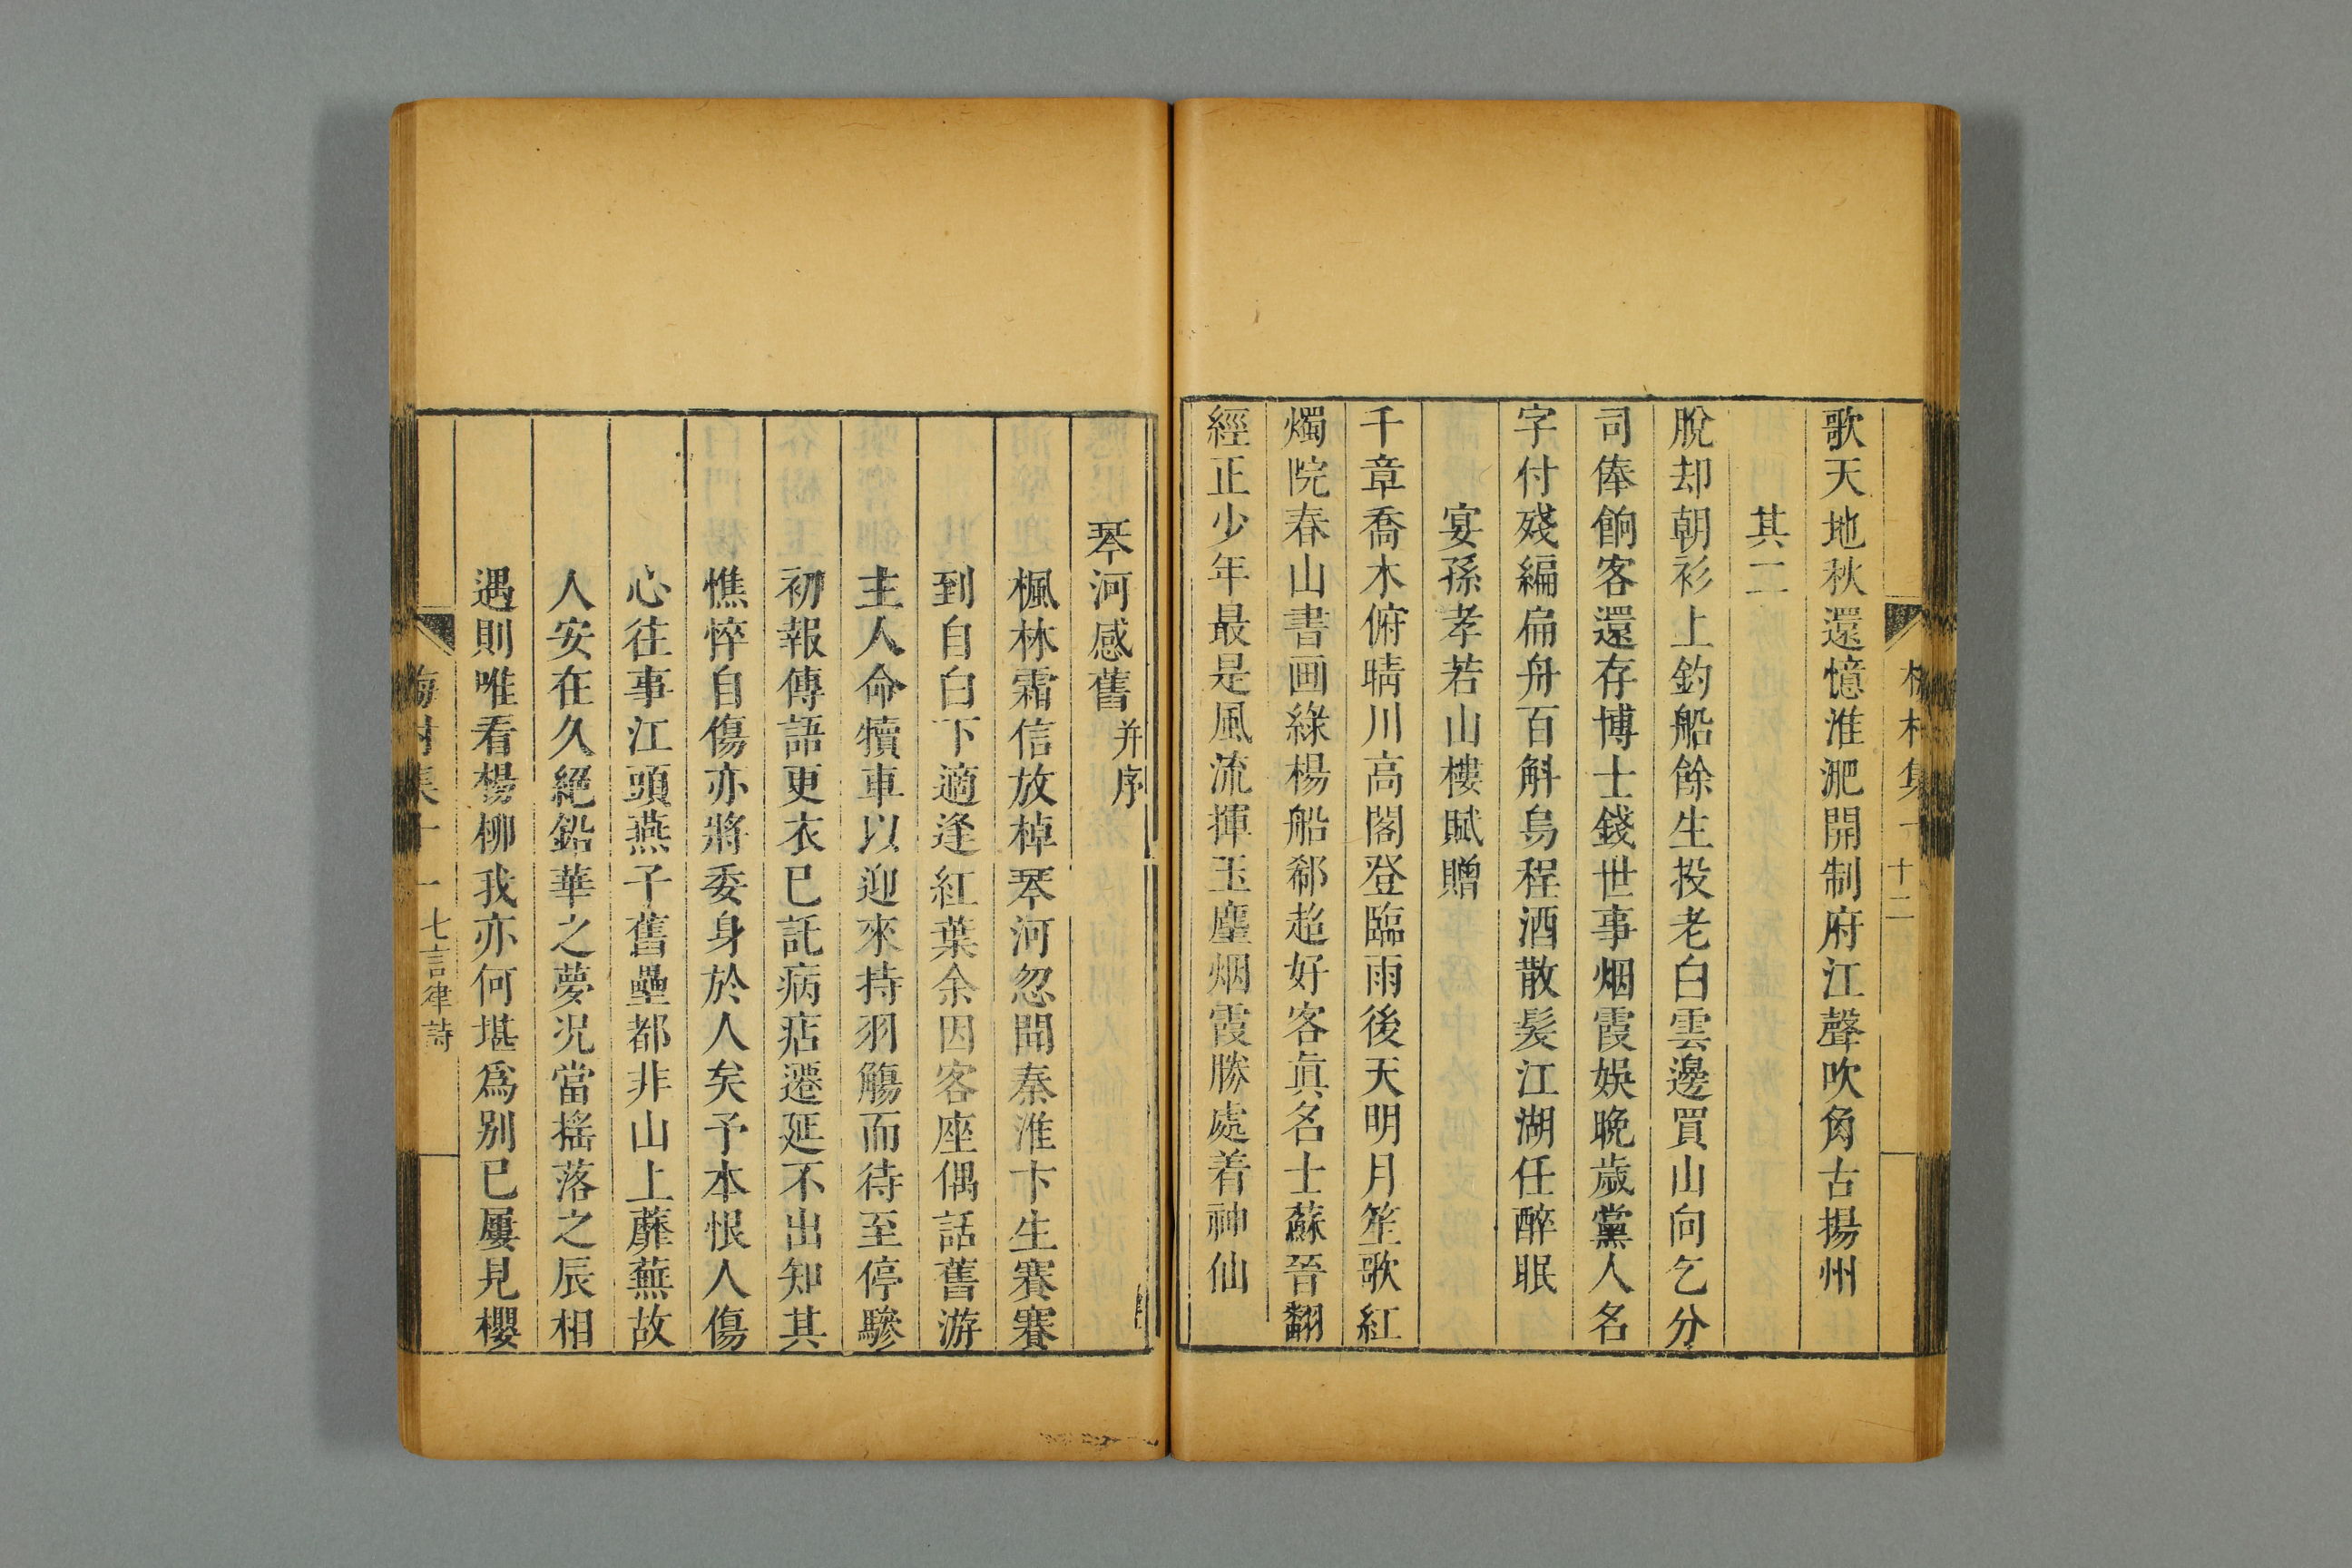 歌天地秋還憶淮淝開制府江聲吹角古揚州
其二
脫却朝衫上釣船餘生投老白雲邊買山向乞分
司俸餉客還存博士錢世事烟霞娛晚歲黨人名
字付殘編扁舟百斛烏程酒散髮江湖任醉眠
宴孫孝若山樓賦贈
千章喬木俯晴川高閣登臨雨後天明月笙歌紅
燭院春山書画綠楊船郗超好客真名士蘇晉翻
經正少年最是風流揮玉麈烟霞勝處着神仙
梅村集十
十二
琴河感舊并序
楓林霜信放棹琴河忽聞秦淮卞生賽賽
到自白下適逢紅葉余因客座偶話舊游
主人命犢車以迎來持羽觴而待至停驂
初報傳語更衣已託病痁遷延不出知其
憔悴自傷亦將委身於人矣予本恨人傷
心往事江頭燕子舊壘都非山上蘼蕪故
人安在久絕鉛華之夢况當搖落之辰相
遇則唯看楊柳我亦何堪爲別已屢見櫻
梅村集十一
七言律詩